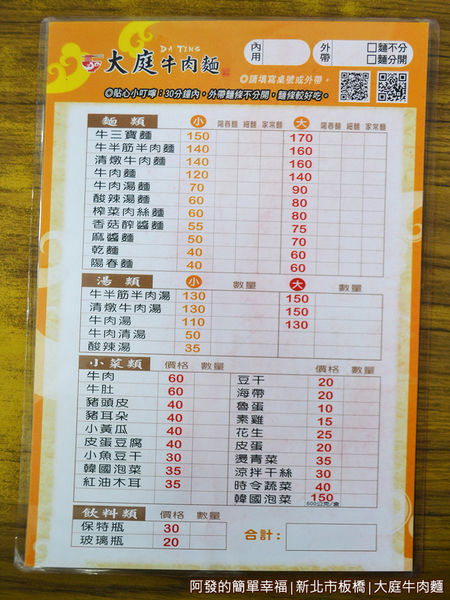 DA TING
大庭牛肉麵
內用
外帶
□麵不分
□麵分開
◎請填寫桌號或外帶。
◎貼心小叮嚀：30分鐘內，外帶麵條不分開，麵條較好吃。
麵類 小 陽春麵 細麵 家常麵 大 陽春麵 細麵 家常麵
牛三寶麵 150 170
牛半筋半肉麵 140 160
清燉牛肉麵 140 160
牛肉麵 120 140
牛肉湯麵 70 90
酸辣湯麵 60 80
榨菜肉絲麵 60 80
香菇醡醬麵 55 75
麻醬麵 50 70
乾麵 40 60
陽春麵 40 60
湯類 小 數量 大 數量
牛半筋半肉湯 130 150
清燉牛肉湯 130 150
牛肉湯 110 130
牛肉清湯 50
酸辣湯 35
小菜類 價格 數量 價格 數量
牛肉 60 豆干 20
牛肚 60 海帶 20
豬頭皮 40 魯蛋 10
豬耳朵 40 素雞 15
小黃瓜 40 花生 25
皮蛋豆腐 40 皮蛋 20
小魚豆干 30 燙青菜 35
韓國泡菜 35 涼拌干絲 30
紅油木耳 35 時令蔬菜 40
韓國泡菜 150
600公克/盒
飲料類 價格 數量
保特瓶 30
玻璃瓶 20
合計：
阿發的簡單幸福|新北市板橋|大庭牛肉麵